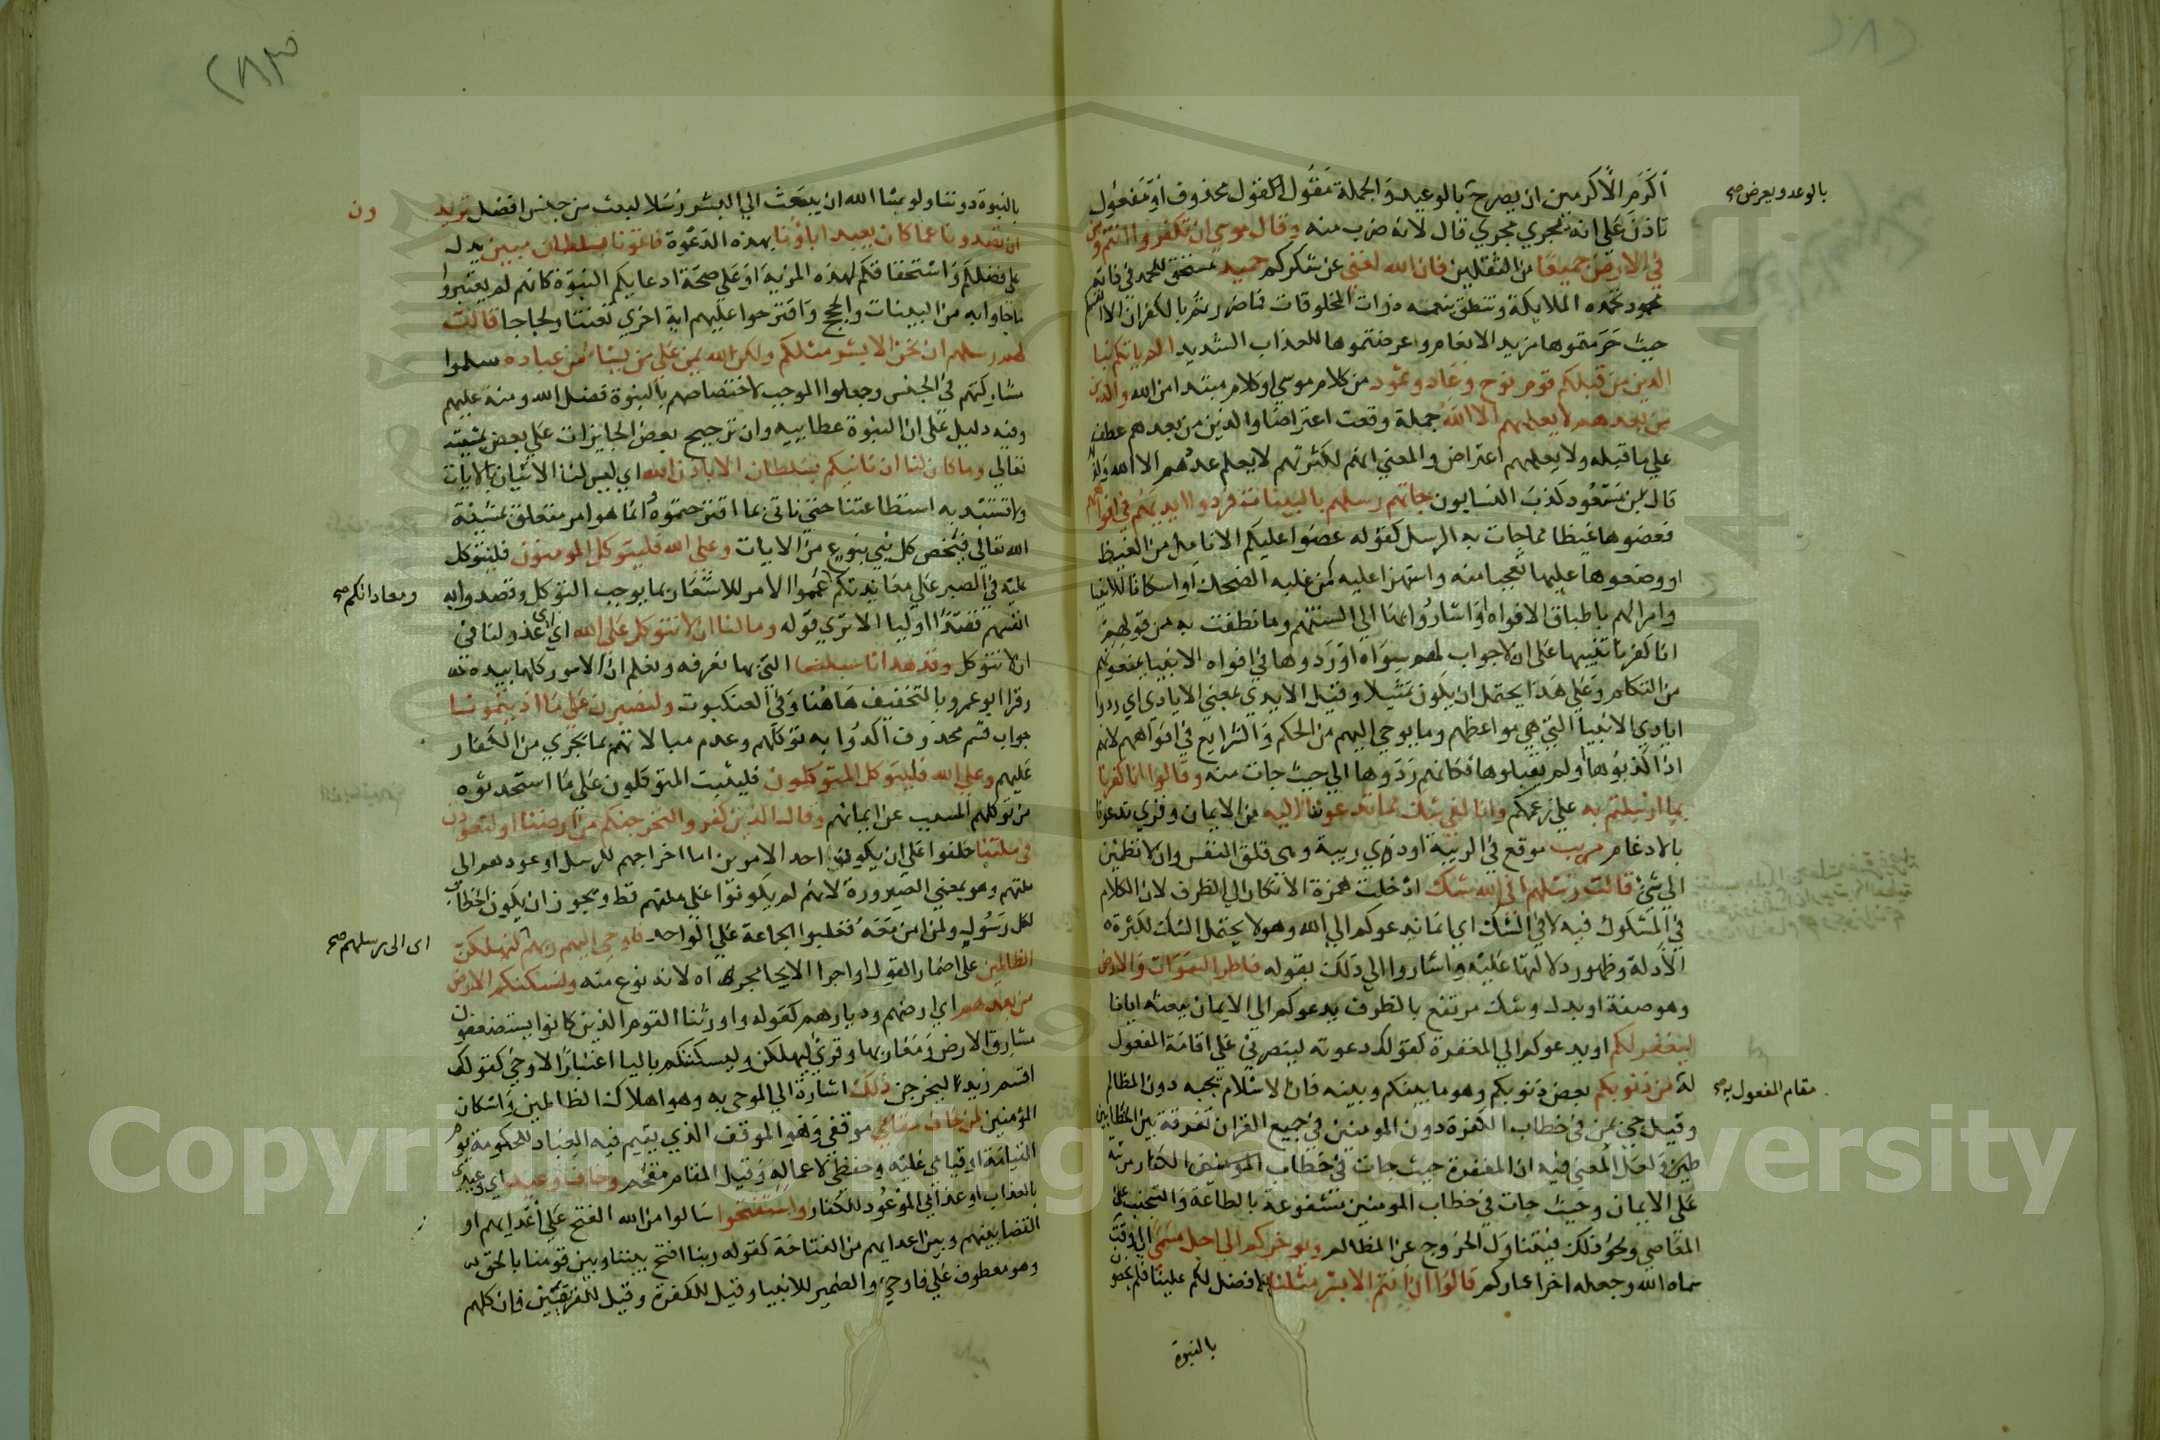 اكرم الاكرمين ان يصرح بالوعيد والجملة مقول لقول محذوف او مفعول
بالوعد ويعرض صح
تاذن على انه يجري مجري قال لانه ضرب منه وقال موسي ان تكفروا انتم ومن
في الارض جميعا من الثقلين فان الله لغني عن شكركم حميد مستحق للحمد في ذاته
محمود تحمده الملايكة وتنطق بنعمه ذرات المخلوقات فما ضررتم بالكفران الا انفسكم
حيث حرمتموها مزيد الانعام وعرضتموها للعذاب الشديد الم ياتكم نبا
الذين من قبلكم قوم نوح وعاد وثمود من كلام موسي او كلام مبتدا من الله والذين
من بعدهم لا يعلمهم الا الله جملة وقعت اعتراضا والذين من بعدهم عطف
علي ما قبله ولا يعلمهم اعتراض والمعني انهم لكثرتهم لا يعلم عددهم الا الله ولذا
قال بن مسعود كذب النسابون جاتهم رسلهم بالبينات فردوا ايديهم في افواههم
فعضوها غيظا مما جات به الرسل كقوله عضوا عليكم الانامل من الغيظ
او وضعوها عليها تعجبا منه واستهزا عليه كمن غلبه الضحك او اسكاتا للانبيا
وامرا لهم باطباق الافواه او اشاروا بها الي السنتهم وما نطقت به من قولهم
انا كفرنا تنبيها على ان لا جواب لهم سواه او ردوها في افواه الانبيا يمنعونهم
من التكلم وعلي هذا يحتمل ان يكون تمثيلا وقيل الايدي بمعني الايادي اي ردوا
ايادي الانبيا التي هي مواعظهم وما يوحي اليهم من الحكم والشرايع في افواههم لانهم
اذا كذبوها ولم يقبلوها فكانهم ردوها الي حيث جات منه وقالوا انا كفرنا
بما ارسلتم به علي زعمكم وانا لفي شك مما تدعوننا اليه من الايمان وقري تدعونا
بالادغام مريب موقع في الريبة او ذي ريبة وهي قلق النفس وان لا تطمئن
الي شي قالت رسلهم افي الله شك ادخلت همزة الانكار الي الظرف لان الكلام
في المشكوك فيه لا في الشك اي انما ندعوكم الي الله وهو لا يحتمل الشك لكثرة
الادلة وظهور دلالتها عليه واشاروا الي ذلك بقوله فاطر السموات والارض
وهو صفة او بدل وشك مرتفع بالظرف يدعوكم الي الايمان ببعثه ايانا
ليغفر لكم او يدعوكم الي المغفرة كقولك دعوته لينصرني علي اقامة المفعول
له من ذنوبكم بعض ذنوبكم وهو ما بينكم وبينه فان الاسلام يجبه دون المظالم
مقام المفعول به صح
وقيل جي بمن في خطاب الكفرة دون المومنين في جميع القران تفرقة بين الخطابين
ولعل المعني فيه ان المغفرة حيث جات في خطاب الكفار مرتبة
على الايمان وحيث جات في خطاب المومنين مشفوعة بالطاعة والتجنب عن
المعاصي ونحو ذلك فيتناول الخروج عن المظالم ويوخركم الي اجل مسمي الي وقت
سماه الله وجعله اخر اعماركم قالوا ان انتم الا بشر مثلنا لا فضل لكم علينا فلم تخصون
بالنبوة
٢٨٣
بالنبوة دوننا ولو شا الله ان يبعث الي البشر رسلا لبعث من جنس افضل تريدون
ان تصدونا عما كان يعبد اباؤنا بهذه الدعوة فاتونا بسلطان مبين يدل
علي فضلكم واستحقاقكم لهذه المزية او علي صحة ادعايكم النبوة كانهم لم يعتبروا
ما جاوا به من البينات والحجج واقترحوا عليهم اية اخري تعنتا ولجاجا قالت
لهم رسلهم ان نحن الا بشر مثلكم ولكن الله يمن على من يشا من عباده سلموا
مشاركتهم في الجنس وجعلوا الموجب لاختصاصهم بالنبوة فضل الله ومنه عليهم
وفيه دليل على ان النبوة عطاييه وان ترجيح بعض الجايزات علي بعض بمشيته
تعالي وما كان لنا ان ناتيكم بسلطان الا باذن الله اي ليس لنا الاتيان بالايات
ولا تستبد به استطاعتنا حتي ناتي بما اقترحتموه انما هو امر متعلق بمشيئة
الله تعالي فيخص كل نبي بنوع من الايات وعلي الله فليتوكل المومنون فلنتوكل
عليه في الصبر علي معاندتكم عمموا الامر للاشعار بما يوجب التوكل وقصدوا به
ومعاداتكم صح
انفسهم قصدا اوليا الا تري قوله وما لنا ان لا نتوكل على الله اي اي عذر لنا في
ان لا نتوكل وقد هدانا سبلنا التي بها نعرفه ونعلم ان الامور كلها بيده
وقرا ابو عمرو بالتخفيف هاهنا وفي العنكبوت ولنصبرن على ما اذيتمونا
جواب قسم محذوف اكدوا به توكلهم وعدم مبالاتهم بما يجري من الكفار
عليهم وعلي الله فليتوكل المتوكلون فليثبت المتوكلون على ما استحدثوه
من توكلهم المسبب عن ايمانهم وقال الذين كفروا لنخرجنكم من ارضنا او لتعودن
في ملتنا حلفوا علي ان يكون احد الامرين اما اخراجهم للرسل او عودهم الي
ملتهم وهو بمعني الصيرورة لانهم لم يكونوا على ملتهم قط ويجوز ان يكون الخطاب
لكل رسول ولمن امن معه فغلبوا الجماعة علي الواحد فاوحي اليهم ربهم لنهلكن
اي الي رسلهم صح
الظالمين على اضمار القول او اجرا الايحا مجراه لانه نوع منه ولنسكننكم الارض
من بعدهم اي ارضهم وديارهم كقوله واورثنا القوم الذين كانوا يستضعفون
مشارق الارض ومغاربها وقري ليهلكن وليسكننكم باليا اعتبارا لاوحي كقولك
اقسم زيد ليخرجن ذلك اشارة الي الموحي به وهو اهلاك الظالمين واسكان
المؤمنين لمن خاف مقامي موقفي وهو الموقف الذي يقيم فيه العباد للحكومة يوم
القيامة او قيامي عليه وحفظي لاعماله وقيل المقام مقحم وخاف وعيد اي وعيدي
بالعذاب او عذابي الموعود للكفار واستفتحوا سالوا من الله الفتح علي اعدايهم او
القضا بينهم وبين اعدايهم من الفتاحة كقوله ربنا افتح بيننا وبين قومنا بالحق
وهو معطوف علي فاوحي والضمير للانبيا وقيل للكفرة وقيل للفريقين فان كلهم
Copyright © King Saud University